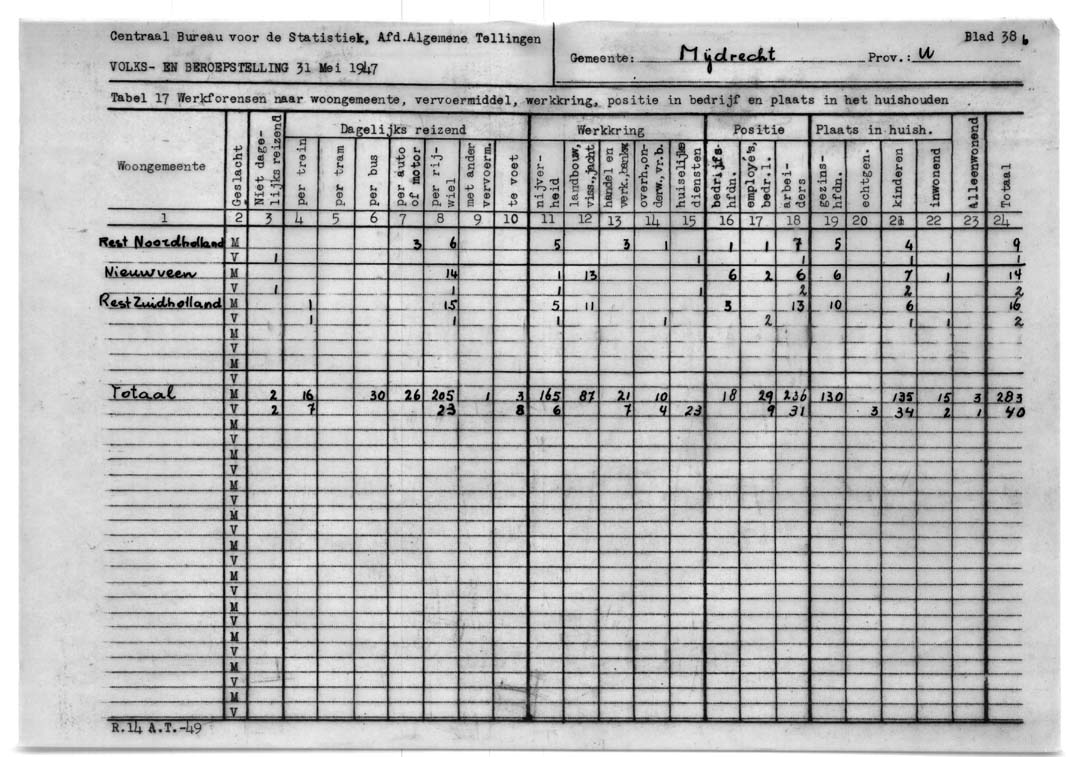 Centraal Bureau voor de Statistiek, Afd.Algemene Tellingen
VOLKS- EN BEROEPSTELLING 31 Mei 1947
Gemeente: Mijdrecht Prov.: U
Blad 38b
Tabel 17 Werkforensen naar woongemeente, vervoermiddel, werkkring, positie in bedrijf en plaats in het huishouden
Woongemeente
Geslacht
Niet dage-
lijks reizend
Dagelijks reizend
per trein
per tram
per bus
per auto
of motor
per rij-
wiel
met ander
vervoerm.
te voet
Werkkring
nijver-
heid
landbouw,
viss.,jacht
handel en
verk.,bankw
overh.,on-
derw.,vr.b.
huiselijke
diensten
Positie
bedrijfs-
hfdn.
employe's,
bedr.l.
arbei-
ders
Plaats in huish.
gezins-
hfdn.
echtgen.
kinderen
inwonend
Alleenwonend
Totaal
1 2 3 4 5 6 7 8 9 10 11 12 13 14 15 16 17 18 19 20 21 22 23 24
Rest Noordholland M 3 6 5 3 1 1 1 7 5 4 9
V 1 1 1 1 1
Nieuwveen M 14 1 13 6 2 6 6 7 1 14
V 1 1 1 1 2 2 2
Rest Zuidholland M 1 15 5 11 3 13 10 6 16
V 1 1 1 1 2 1 1 2
M
V
M
V
Totaal M 2 16 30 26 205 1 3 165 87 21 10 18 29 236 130 135 15 3 283
V 2 7 23 8 6 7 4 23 9 31 3 34 2 1 40
M
V
M
V
M
V
M
V
M
V
M
V
M
V
M
V
M
V
M
V
R.14 A.T.-49